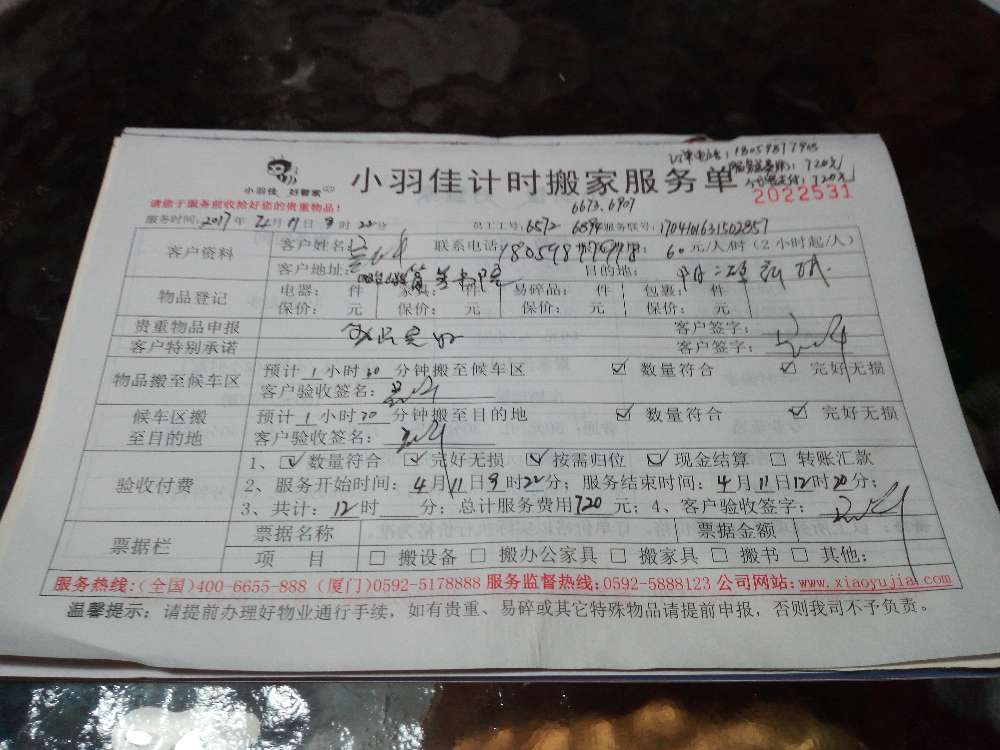 订单电话:18059877908
服务总费用:720元
今日需支付:720元
小羽佳 好管家
小羽佳计时搬家服务单
2022531
请您于服务前收拾好您的贵重物品!
6673.6907
服务时间:2017年4月11日9时22分 员工工号:6572 6894 服务联号:1704101631502857
客户资料
客户姓名: 联系电话: 60元/人/时(2小时起/人)
客户地址: 目的地:
物品登记
电器: 件 家具: 件 易碎品: 件 包裹: 件
保价: 元 保价: 元 保价: 元 保价: 元
贵重物品申报 客户签字:
客户特别承诺 客户签字:
物品搬至候车区
预计1小时30分钟搬至候车区 ☑ 数量符合 ☑ 完好无损
客户验收签名:
候车区搬至目的地
预计1小时20分钟搬至目的地 ☑ 数量符合 ☑ 完好无损
客户验收签名:
验收付费
1、☑数量符合 ☑完好无损 ☑按需归位 ☑现金结算 □转账汇款
2、服务开始时间:4月11日9时22分;服务结束时间:4月11日12时20分;
3、共计:12时 分;总计服务费用720元;4、客户验收签字:
票据栏
票据名称 票据金额
项 目 □搬设备 □搬办公家具 □搬家具 □搬书 □其他:
服务热线:(全国)400-6655-888 (厦门)0592-5178888 服务监督热线:0592-5888123 公司网站:www.xiaoyujia.com
温馨提示:请提前办理好物业通行手续,如有贵重、易碎或其它特殊物品请提前申报,否则我司不予负责。